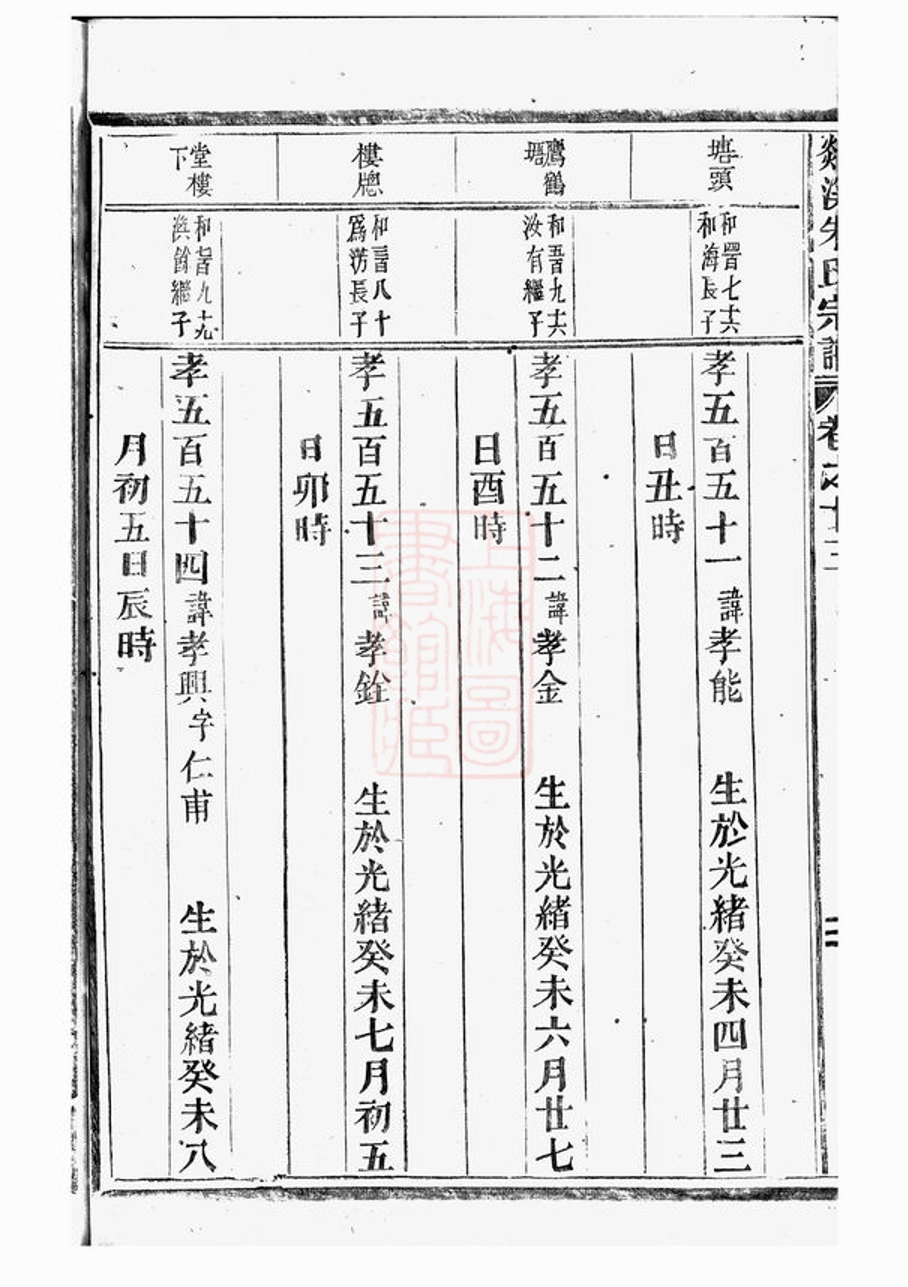 朱氏宗譜 卷之十三
塘頭
和四百七十六
和海長子
孝五百五十一 諱孝能 生於光緒癸未四月廿三
日丑時
鷹鶴塘
和五百九十六
汝有繼子
孝五百五十二 諱孝金 生於光緒癸未六月廿七
日酉時
樓牕
和三百八十
為涝長子
孝五百五十三 諱孝銓 生於光緒癸未七月初五
日卯時
堂樓下
和七百九十九
繼子
孝五百五十四 諱孝興 字仁甫 生於光緒癸未八
月初五日辰時
上海圖書館藏